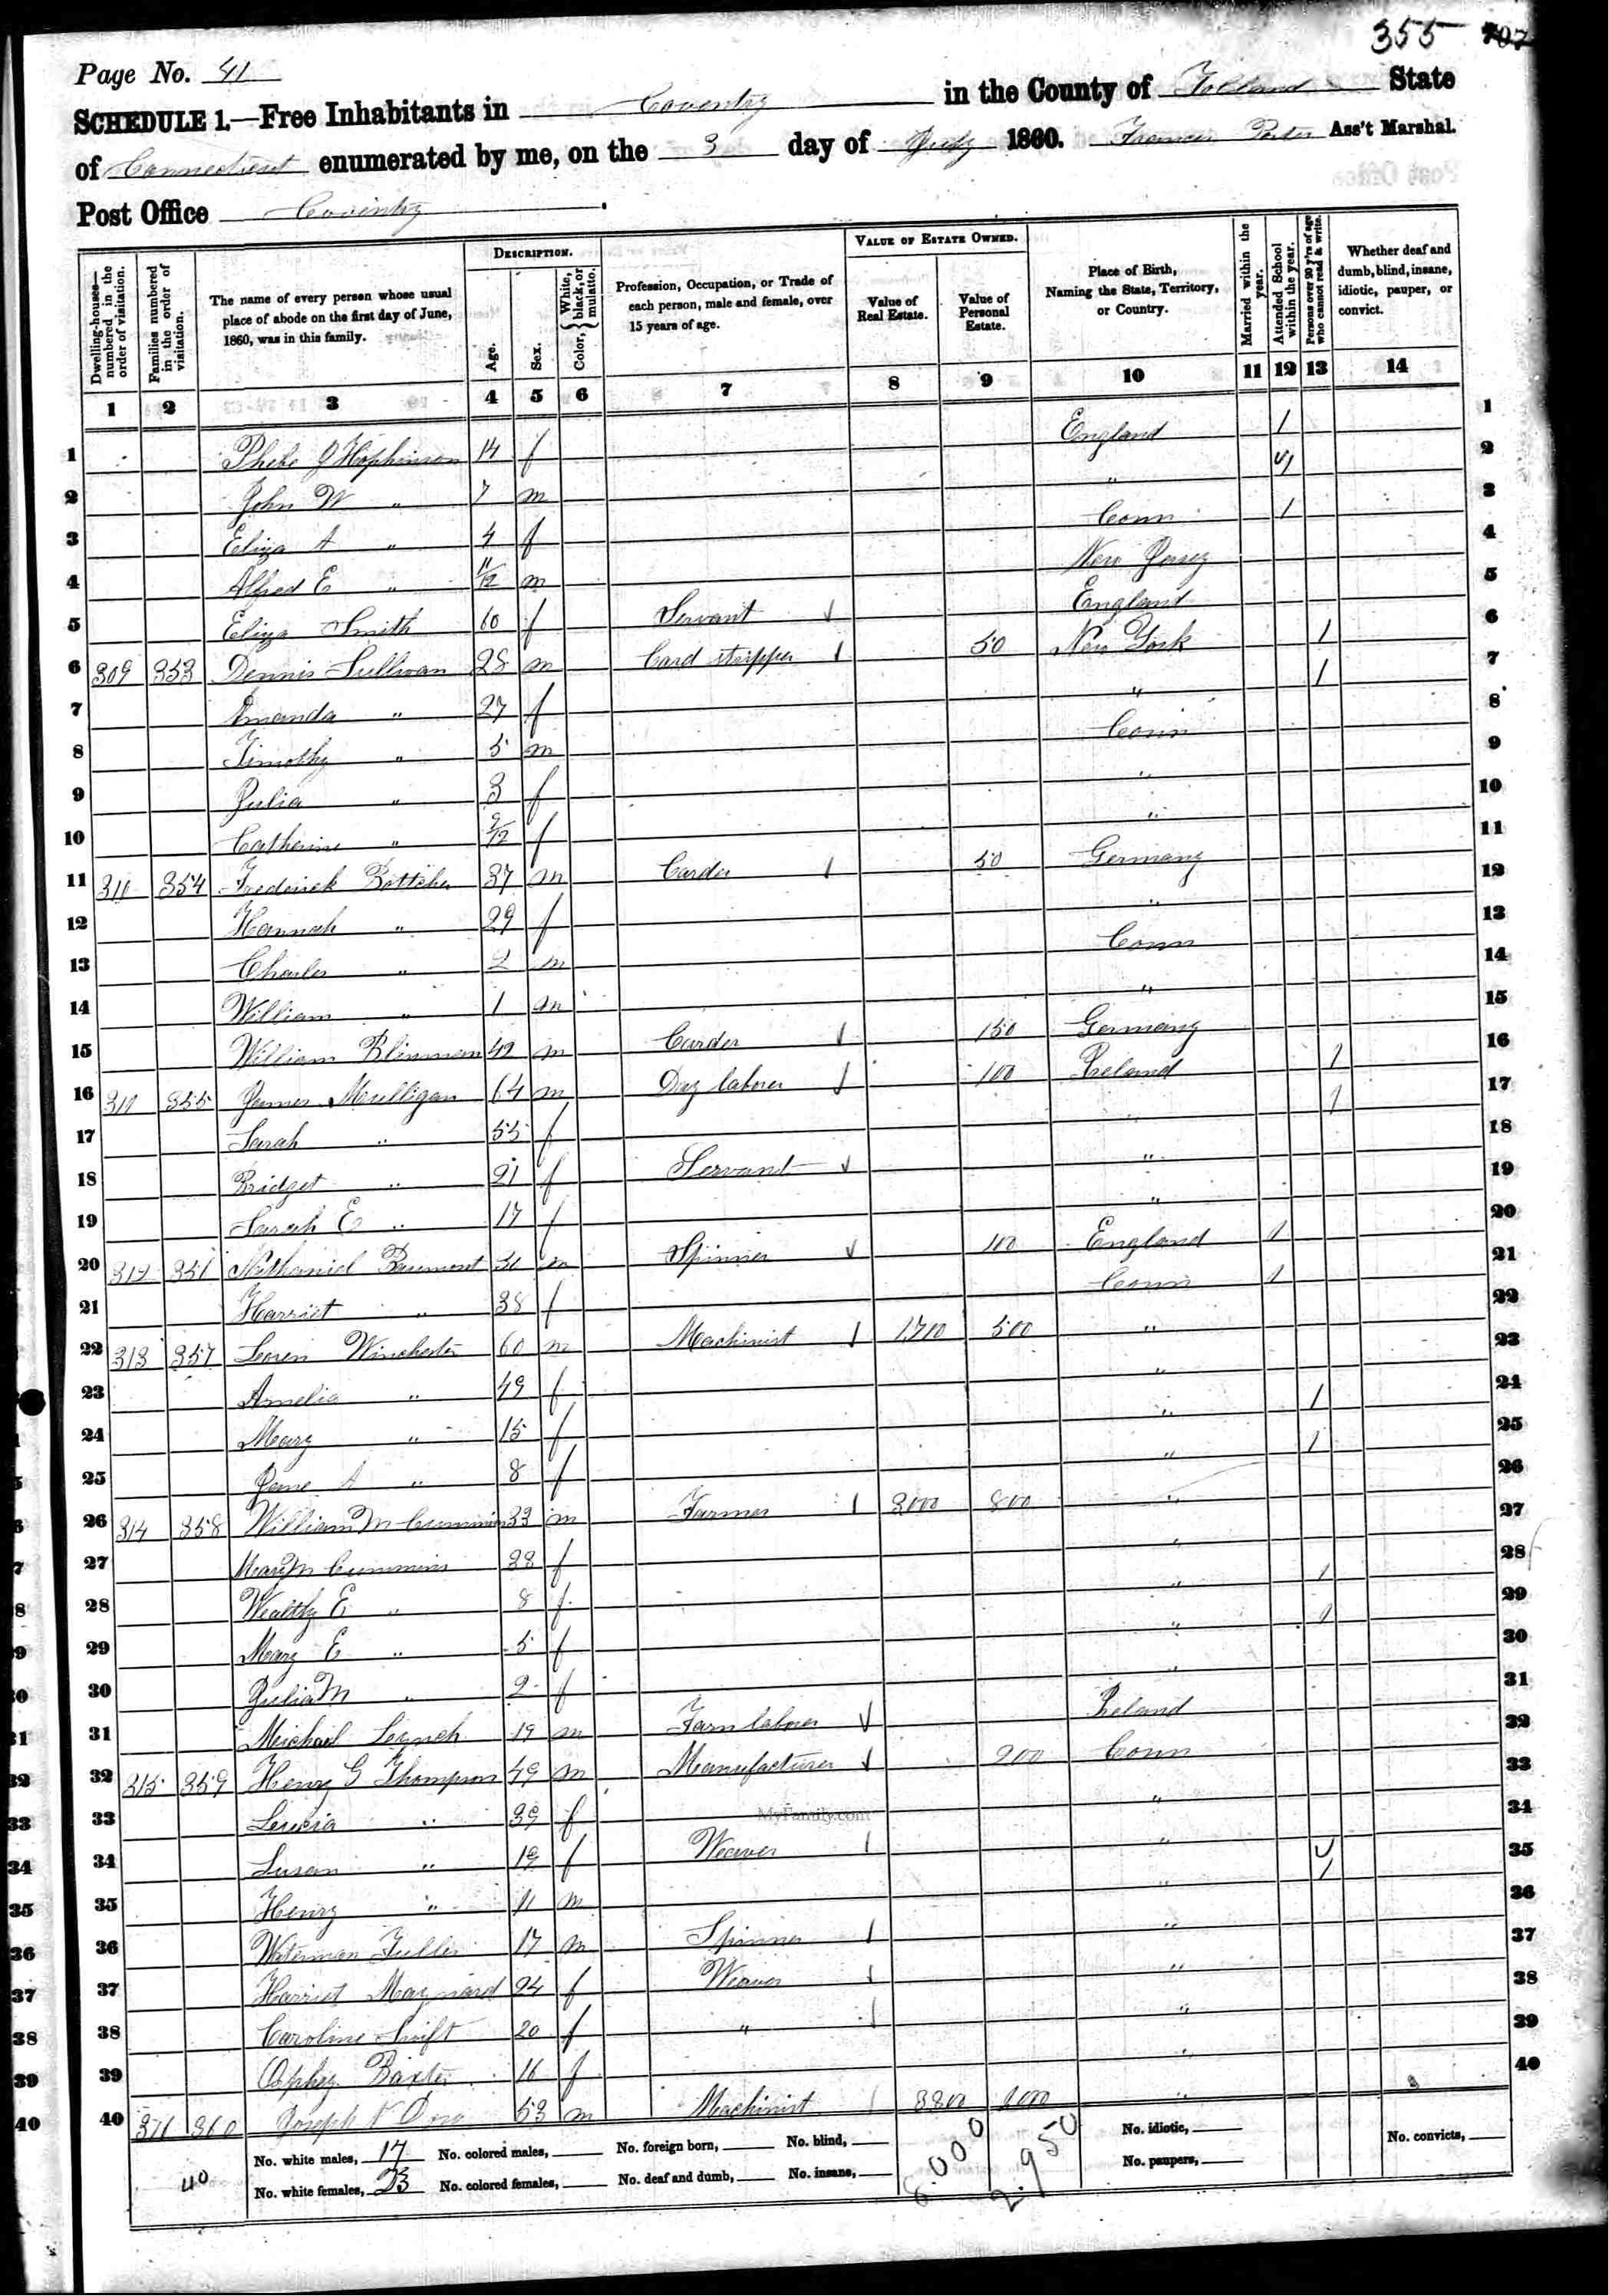 355 707
Page No. 41
SCHEDULE 1.—Free Inhabitants in Coventry in the County of Tolland State
of Connecticut enumerated by me, on the 3 day of July 1860. Francis Porter Ass't Marshal.
Post Office Coventry
Dwelling-houses—numbered in the order of visitation. Families numbered in the order of visitation. The name of every person whose usual place of abode on the first day of June, 1860, was in this family. DESCRIPTION. Age. Sex. Color, { White, black, or mulatto. Profession, Occupation, or Trade of each person, male and female, over 15 years of age. VALUE OF ESTATE OWNED. Value of Real Estate. Value of Personal Estate. Place of Birth, Naming the State, Territory, or Country. Married within the year. Attended School within the year. Persons over 20 y'rs of age who cannot read & write. Whether deaf and dumb, blind, insane, idiotic, pauper, or convict.
1 2 3 4 5 6 7 8 9 10 11 12 13 14
1 Phebe J Hopkinson 14 f England 1 1
2 John W " 7 m " 1 2
3 Eliza A " 4 f Conn 1 3
4 Alfred E " 11/12 m New Jersey 4
5 Eliza Smith 60 f Servant England 5
6 309 353 Dennis Sullivan 28 m Card stripper 50 New York 1 6
7 Amanda " 27 f " 1 7
8 Timothy " 5 m Conn 8
9 Julia " 3 f " 9
10 Catherine " 9/12 f " 10
11 310 354 Frederick Bottcher 37 m Carder 50 Germany 11
12 Hannah " 29 f " 12
13 Charles " 2 m Conn 13
14 William " 1 m " 14
15 William m Carder 150 Germany 15
16 311 355 James Mulligan 64 m Day laborer 100 Ireland 1 16
17 Sarah " 55 f " 1 17
18 Bridget " 21 f Servant " 18
19 Sarah E " 17 f " 19
20 312 356 Nathaniel Beaumont m Spinner 100 England 1 20
21 Harriet " 38 f Conn 1 21
22 313 357 Loren Winchester 60 m Machinist 1,700 500 " 22
23 Amelia " 49 f " 23
24 Mary " 15 f " 1 24
25 Jane A " 8 f " 1 25
26 314 358 William M Cummins 33 m Farmer 3000 800 " 26
27 Mary M Cummins 28 f " 27
28 Wealthy E " 8 f " 1 28
29 Mary E " 5 f " 1 29
30 Julia M " 2 f " 30
31 Michael Lynch 19 m Farm laborer Ireland 31
32 315 359 Henry G Thompson 49 m Manufacturer 200 Conn 32
33 " 39 f " 33
34 Susan " 19 f Weaver " 34
35 Henry " 11 m " 1 35
36 Waterman Fuller 17 m Spinner " 36
37 Harriet Maynard 24 f Weaver " 37
38 Caroline Swift 20 f " " 38
39 Baxter 16 f " 39
40 316 360 Joseph N Dow 53 m Machinist 3300 1000 " 40
MyFamily.com
40 No. white males, 17 No. colored males, No. foreign born, No. blind, 8.000 2.950 No. idiotic, No. convicts,
No. white females, 23 No. colored females, No. deaf and dumb, No. insane, No. paupers,